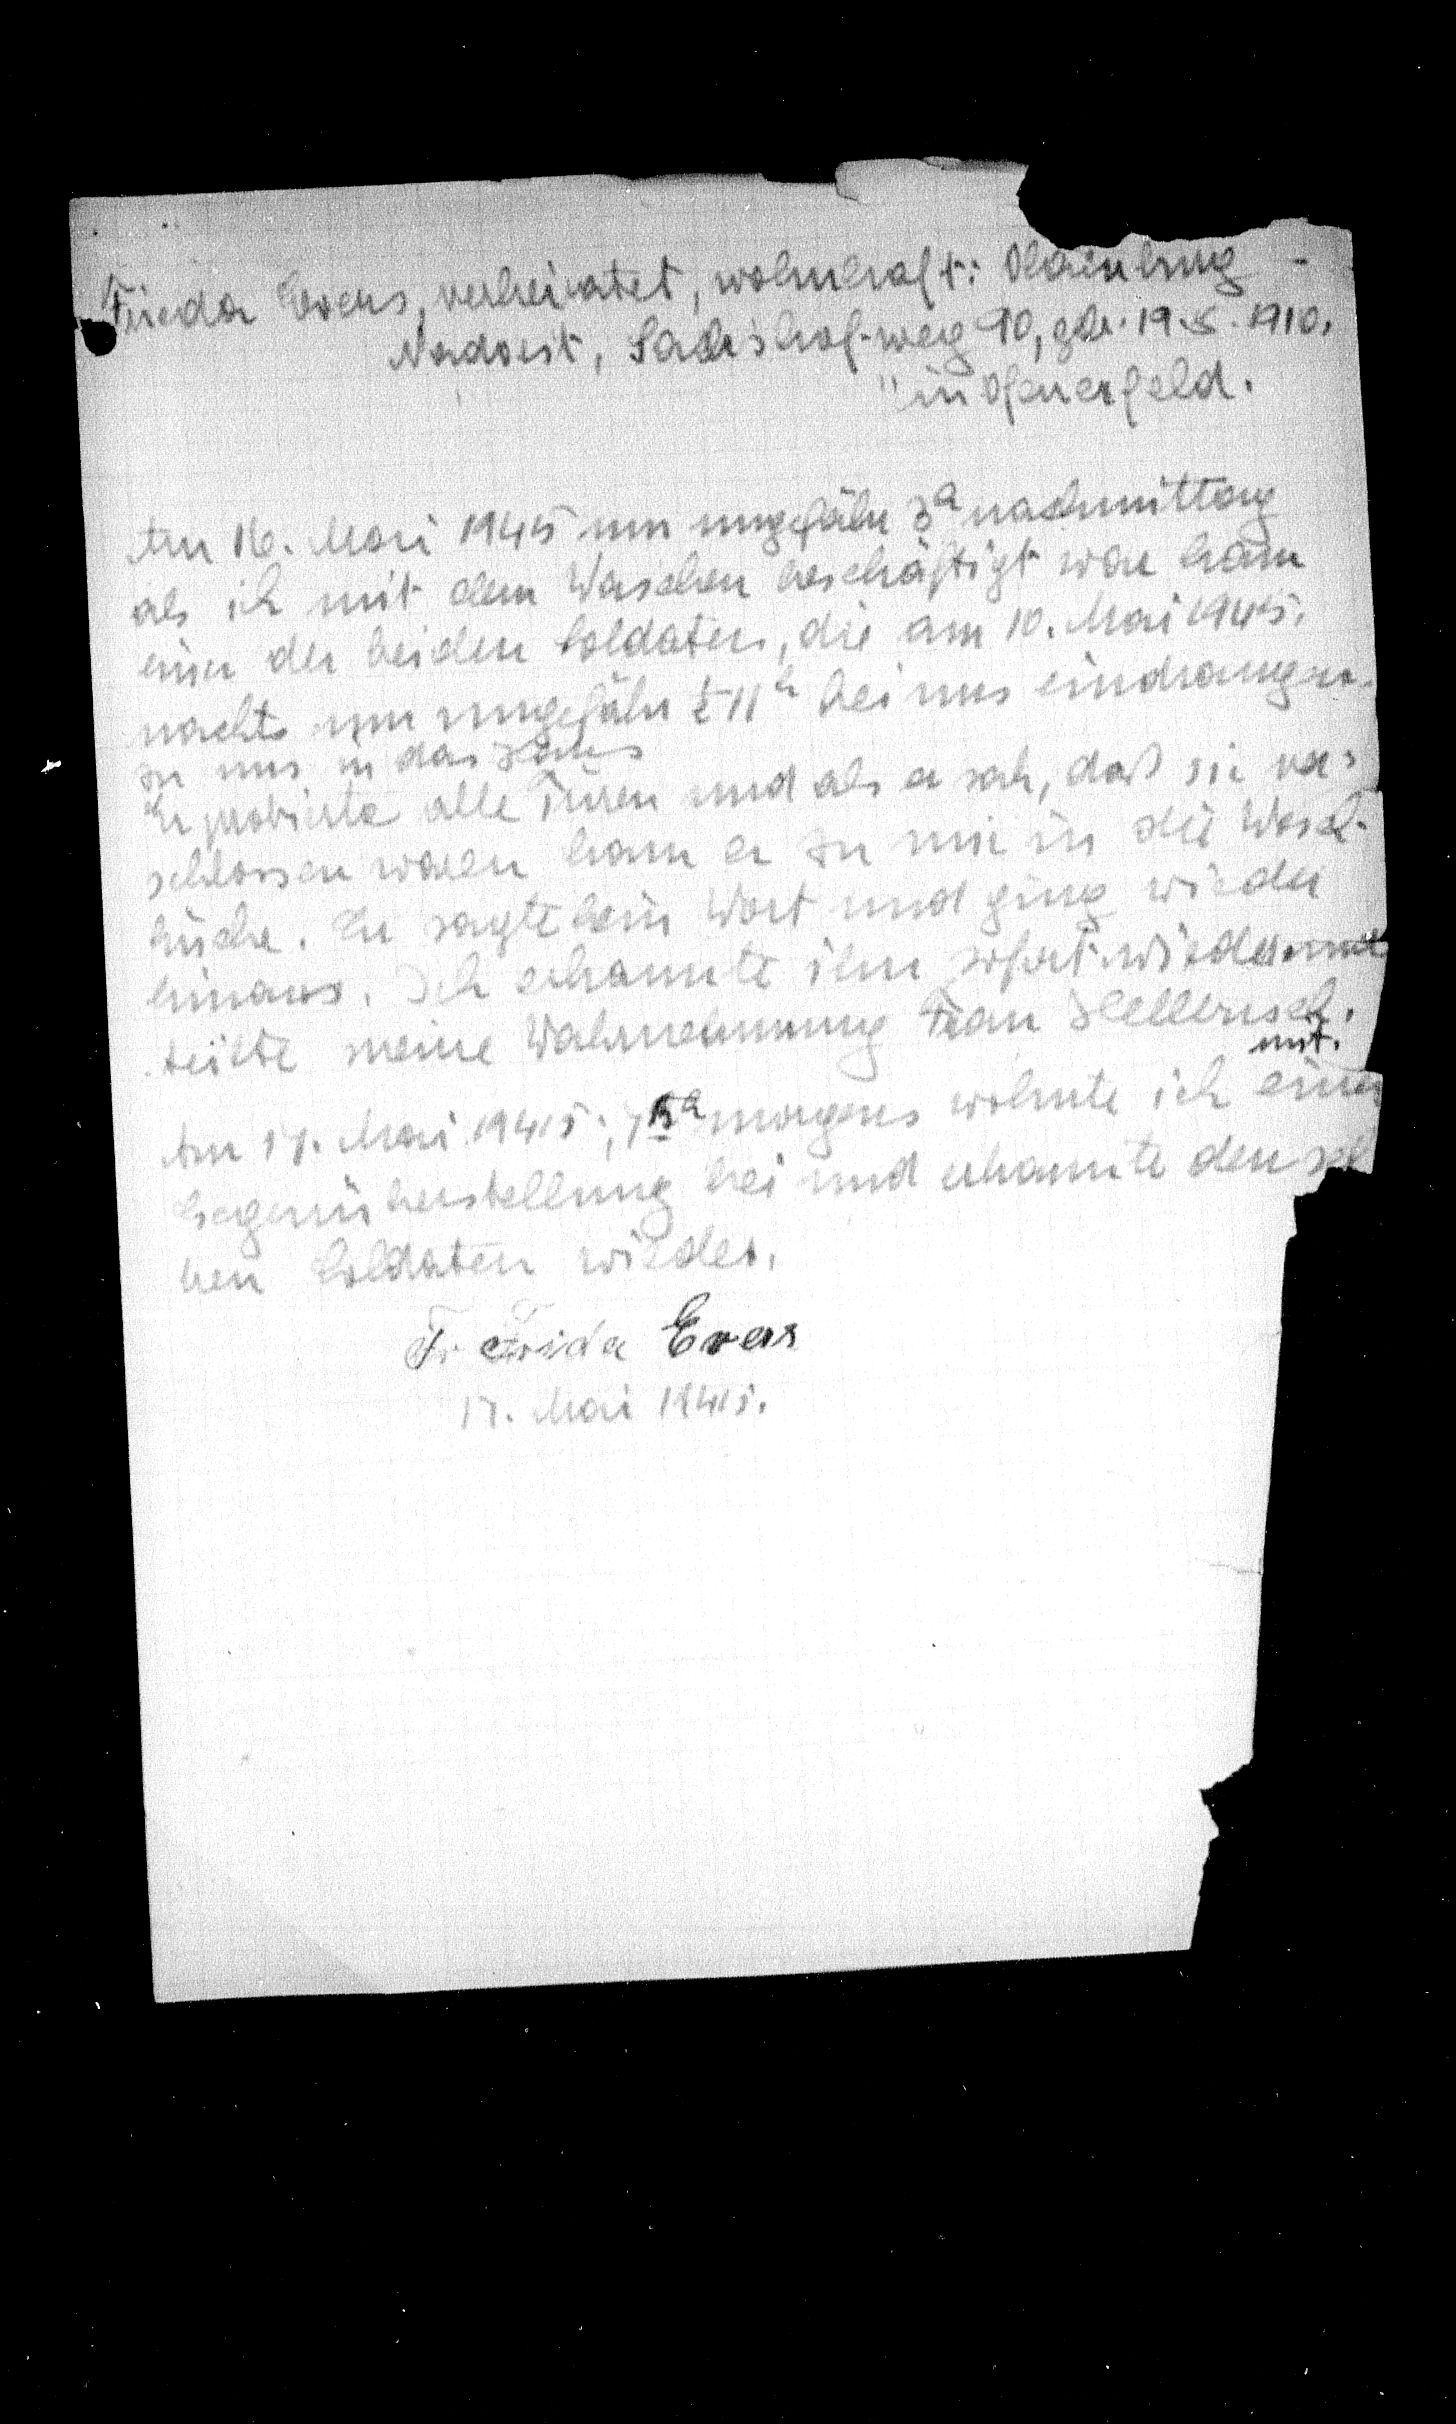 Frieda Evers, verheiratet, wohnhaft: Oldenburg -
Nordost, weg 90, geb. 19.5.1910.
in Ofenerfeld.
Am 16. Mai 1945 um ungefähr 3h nachmittag
als ich mit dem Waschen beschäftigt war kam
einer der beiden Soldaten, die am 10. Mai 1945.
nachts um ungefähr ½11h bei uns eindrangen.
zu uns in das Haus
Er probierte alle Türen und als er sah, daß sie ver-
schlossen waren kam er zu mir in die Wasch-
küche. Er sagte kein Wort und ging wieder
hinaus. Ich erkannte ihn sofort wieder und
teilte meine Wahrnehmung Frau
mit.
Am 17. Mai 1945, morgens wohnte ich einer
Gegenüberstellung bei und erkannte densel
ben Soldaten wieder.
Fr. Frida Evers
17. Mai 1945.